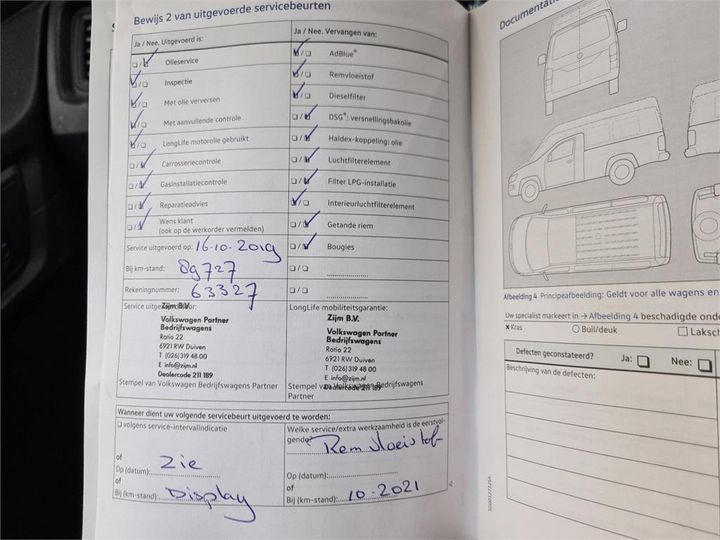 Bewijs 2 van uitgevoerde servicebeurten
Ja / Nee. Uitgevoerd is:
Olieservice
Inspectie
Met olie verversen
Met aanvullende controle
LongLife motorolie gebruikt
Carrosseriecontrole
Gasinstallatiecontrole
Reparatieadvies
Wens klant
(ook op de werkorder vermelden)
Service uitgevoerd op: 16-10-2019
Bij km-stand: 89727
Rekeningnummer: 63327
Service
Zijm B.V.
Volkswagen Partner
Bedrijfswagens
Ratio 22
6921 RW Duiven
T (026) 319 48 00
E info@zijm.nl
Dealercode 211 189
Stempel van Volkswagen Bedrijfswagens Partner
Ja / Nee. Vervangen van:
AdBlue®
Remvloeistof
Dieselfilter
DSG®: versnellingsbakolie
Haldex-koppeling: olie
Luchtfilterelement
Filter LPG-installatie
Interieurluchtfilterelement
Getande riem
Bougies
LongLife mobiliteitsgarantie:
Zijm B.V.
Volkswagen Partner
Bedrijfswagens
Ratio 22
6921 RW Duiven
T (026) 319 48 00
E info@zijm.nl
Dealercode 211 189
Stempel van Volkswagen Bedrijfswagens
Partner
Wanneer dient uw volgende servicebeurt uitgevoerd te worden:
volgens service-intervalindicatie
of
Zie
Op (datum):
of
Bij (km-stand): Display
Welke service/extra werkzaamheid is de eerstvol-
gende? Remvloeistof
of
Op (datum):
of
Bij (km-stand): 10-2021
Documentatie
Afbeelding 4 Principeafbeelding: Geldt voor alle wagens en
Uw specialist markeert in → Afbeelding 4 beschadigde onde
x Kras
Buil/deuk
Laksch
Defecten geconstateerd?
Ja:
Nee:
Beschrijving van de defecten: